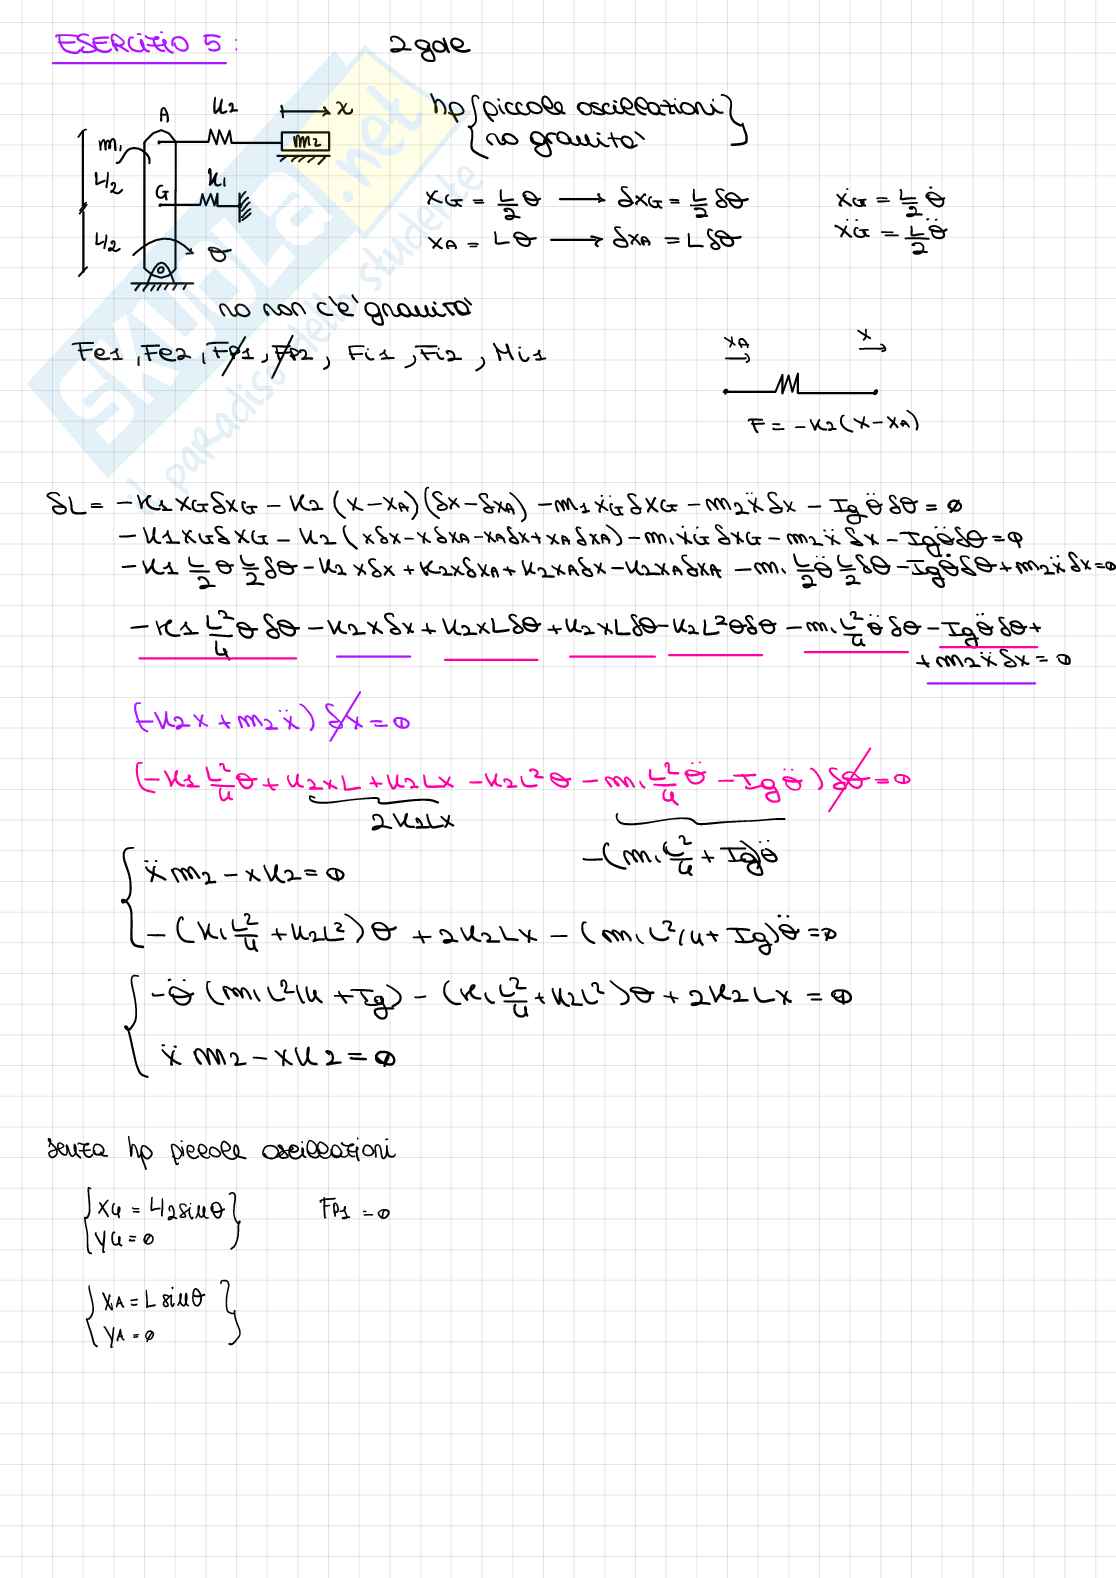 ESERCIZIO 5 :
2gde
A
K2
x
m1
m2
L/2
G
K1
L/2
θ
hp { piccole oscillazioni
no gravità }
xG = L/2 θ → δxG = L/2 δθ
ẋG = L/2 θ̇
xA = Lθ → δxA = Lδθ
ẍG = L/2 θ̈
no non c'è gravità
Fe1 , Fe2 , Fp1 , Fp2 , Fi1 , Fi2 , Mi1
xA
x
F = -K2 (x - xA)
δL = -K1 xG δxG - K2 (x - xA) (δx - δxA) - m1 ẍG δxG - m2 ẍ δx - Ig θ̈ δθ = 0
-K1 xG δxG - K2 (xδx - xδxA - xAδx + xA δxA) - m1 ẍG δxG - m2 ẍ δx - Ig θ̈ δθ = 0
-K1 L/2 θ L/2 δθ - K2 xδx + K2 xδxA + K2 xAδx - K2 xAδxA - m1 L/2 θ̈ L/2 δθ - Ig θ̈ δθ + m2 ẍ δx = 0
-K1 L²/4 θ δθ - K2 xδx + K2 xLδθ + K2 xLδθ - K2 L²θδθ - m1 L²/4 θ̈ δθ - Ig θ̈ δθ +
+ m2 ẍ δx = 0
(-K2 x + m2 ẍ) δx = 0
(-K1 L²/4 θ + K2 xL + K2 Lx - K2 L² θ - m1 L²/4 θ̈ - Ig θ̈) δθ = 0
2K2Lx
-(m1 L²/4 + Ig) θ̈
{ ẍ m2 - x K2 = 0
-(K1 L²/4 + K2L²) θ + 2K2Lx - (m1 L²/4 + Ig) θ̈ = 0
{ -θ̈ (m1 L²/4 + Ig) - (K1 L²/4 + K2L²) θ + 2K2 Lx = 0
ẍ m2 - xK2 = 0
senza hp piccole oscillazioni
{ xG = L/2 sinθ }
yG = 0
FP1 = 0
{ xA = L sinθ }
yA = 0
SKUOLA.net
il paradiso dello studente